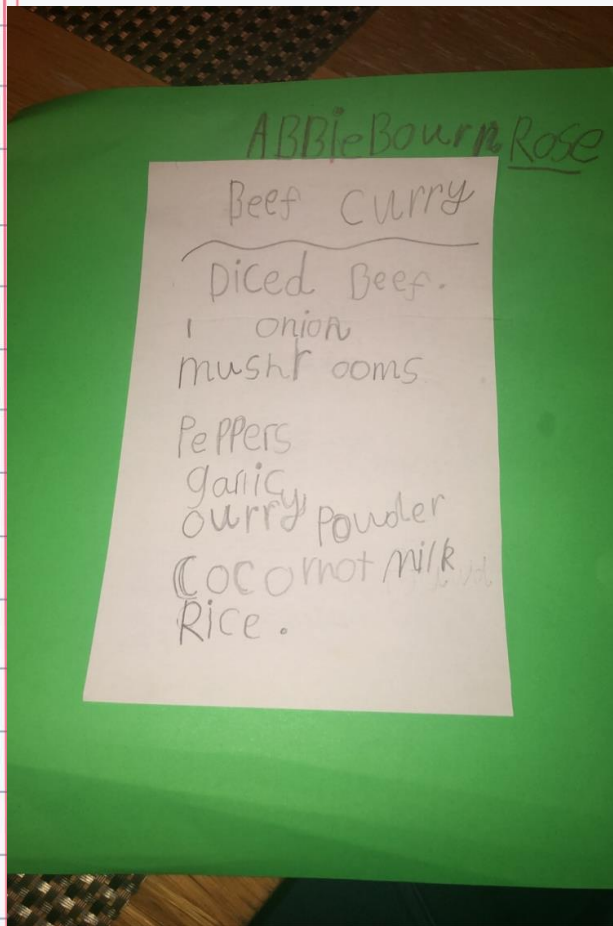 ABBieBourn Rose
Beef Curry
Diced Beef.
1 onion
mushr ooms
Peppers
garlic
curry powder
Cocornot milk
Rice.